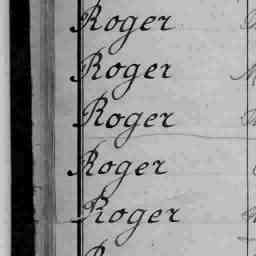 Roger
Roger
Roger
Roger
Roger